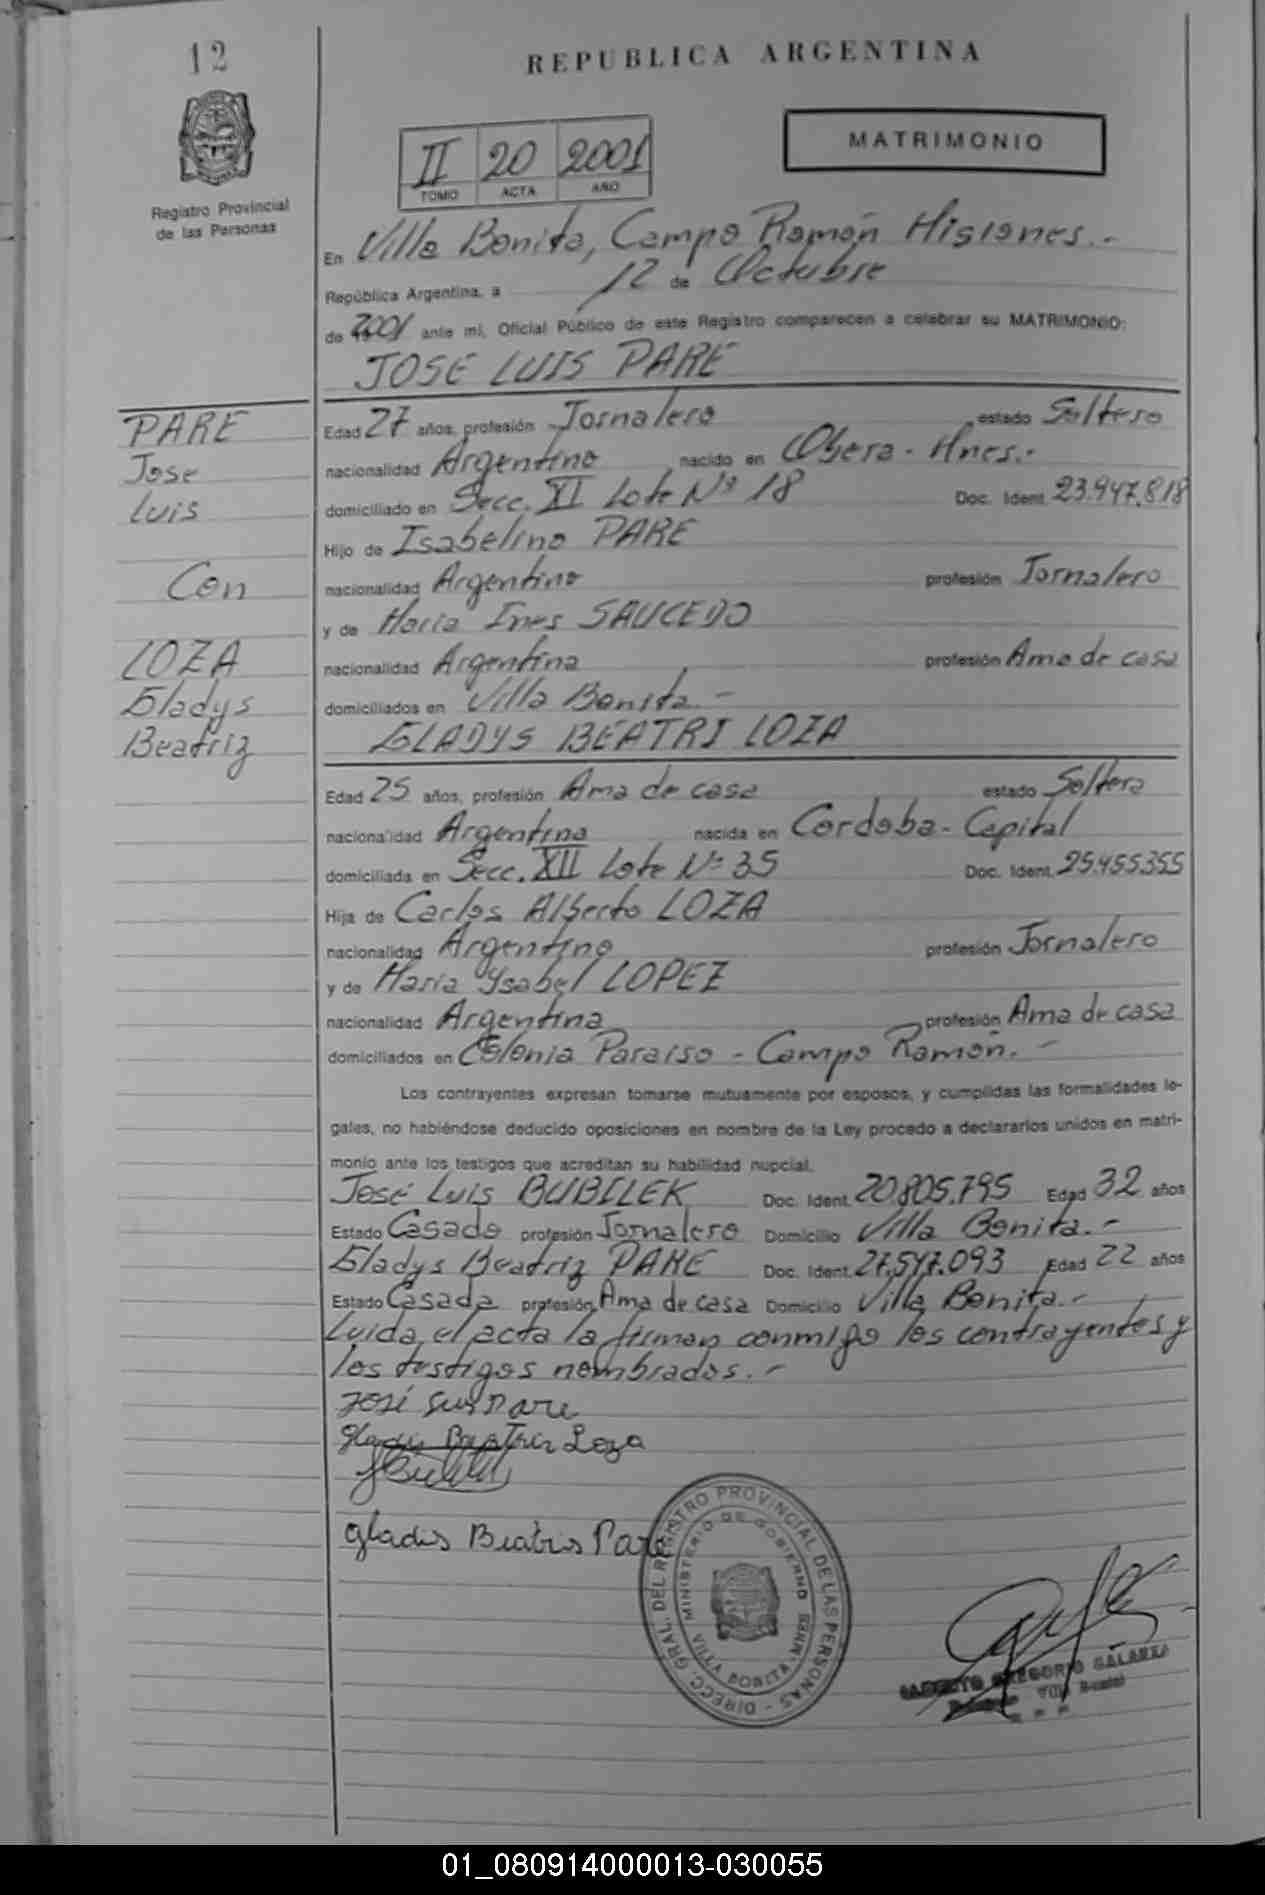 12
REPUBLICA ARGENTINA
MATRIMONIO
II 20 2001
TOMO ACTA AÑO
Registro Provincial
de las Personas
En Villa Bonita, Campo Ramón Misiones.-
República Argentina, a 12 de Octubre
de 2001 ante mi, Oficial Público de este Registro comparecen a celebrar su MATRIMONIO:
JOSE LUIS PARE
PARE
Jose
Luis
Con
LOZA
Gladys
Beatriz
Edad 27 años, profesión Jornalero estado Soltero
nacionalidad Argentino nacido en Obera - Mnes.-
domiciliado en Secc. XI Lote Nº 18 Doc. Ident. 23.947.818
Hijo de Isabelino PARE
nacionalidad Argentino profesión Jornalero
y de Maria Ines SAUCEDO
nacionalidad Argentina profesión Ama de casa
domiciliados en Villa Bonita.-
GLADYS BEATRI LOZA
Edad 25 años, profesión Ama de casa estado Soltera
nacionalidad Argentina nacida en Cordoba - Capital
domiciliada en Secc. XII Lote Nº 35 Doc. Ident. 25.455.355
Hija de Carlos Alberto LOZA
nacionalidad Argentino profesión Jornalero
y de Maria Ysabel LOPEZ
nacionalidad Argentina profesión Ama de casa
domiciliados en Colonia Paraiso - Campo Ramón.-
Los contrayentes expresan tomarse mutuamente por esposos, y cumplidas las formalidades le-
gales, no habiéndose deducido oposiciones en nombre de la Ley procedo a declararlos unidos en matri-
monio ante los testigos que acreditan su habilidad nupcial.
José Luis BUBILEK Doc. Ident. 20.805.795 Edad 32 años
Estado Casado profesión Jornalero Domicilio Villa Bonita.-
Gladys Beatriz PARE Doc. Ident. 27.547.093 Edad 22 años
Estado Casada profesión Ama de casa Domicilio Villa Bonita.-
Luida el acta la firman conmigo los contrayentes y
los testigos nombrados.-
José Luis Pare
Gladis Beatriz Loza
Gladis Beatris Pare
DIRECC. GRAL. DEL REGISTRO PROVINCIAL DE LAS PERSONAS -
MINISTERIO DE GOBIERNO
VILLA BONITA - MNES
GREGORIO GALARZA
Villa Bonita
01_080914000013-030055